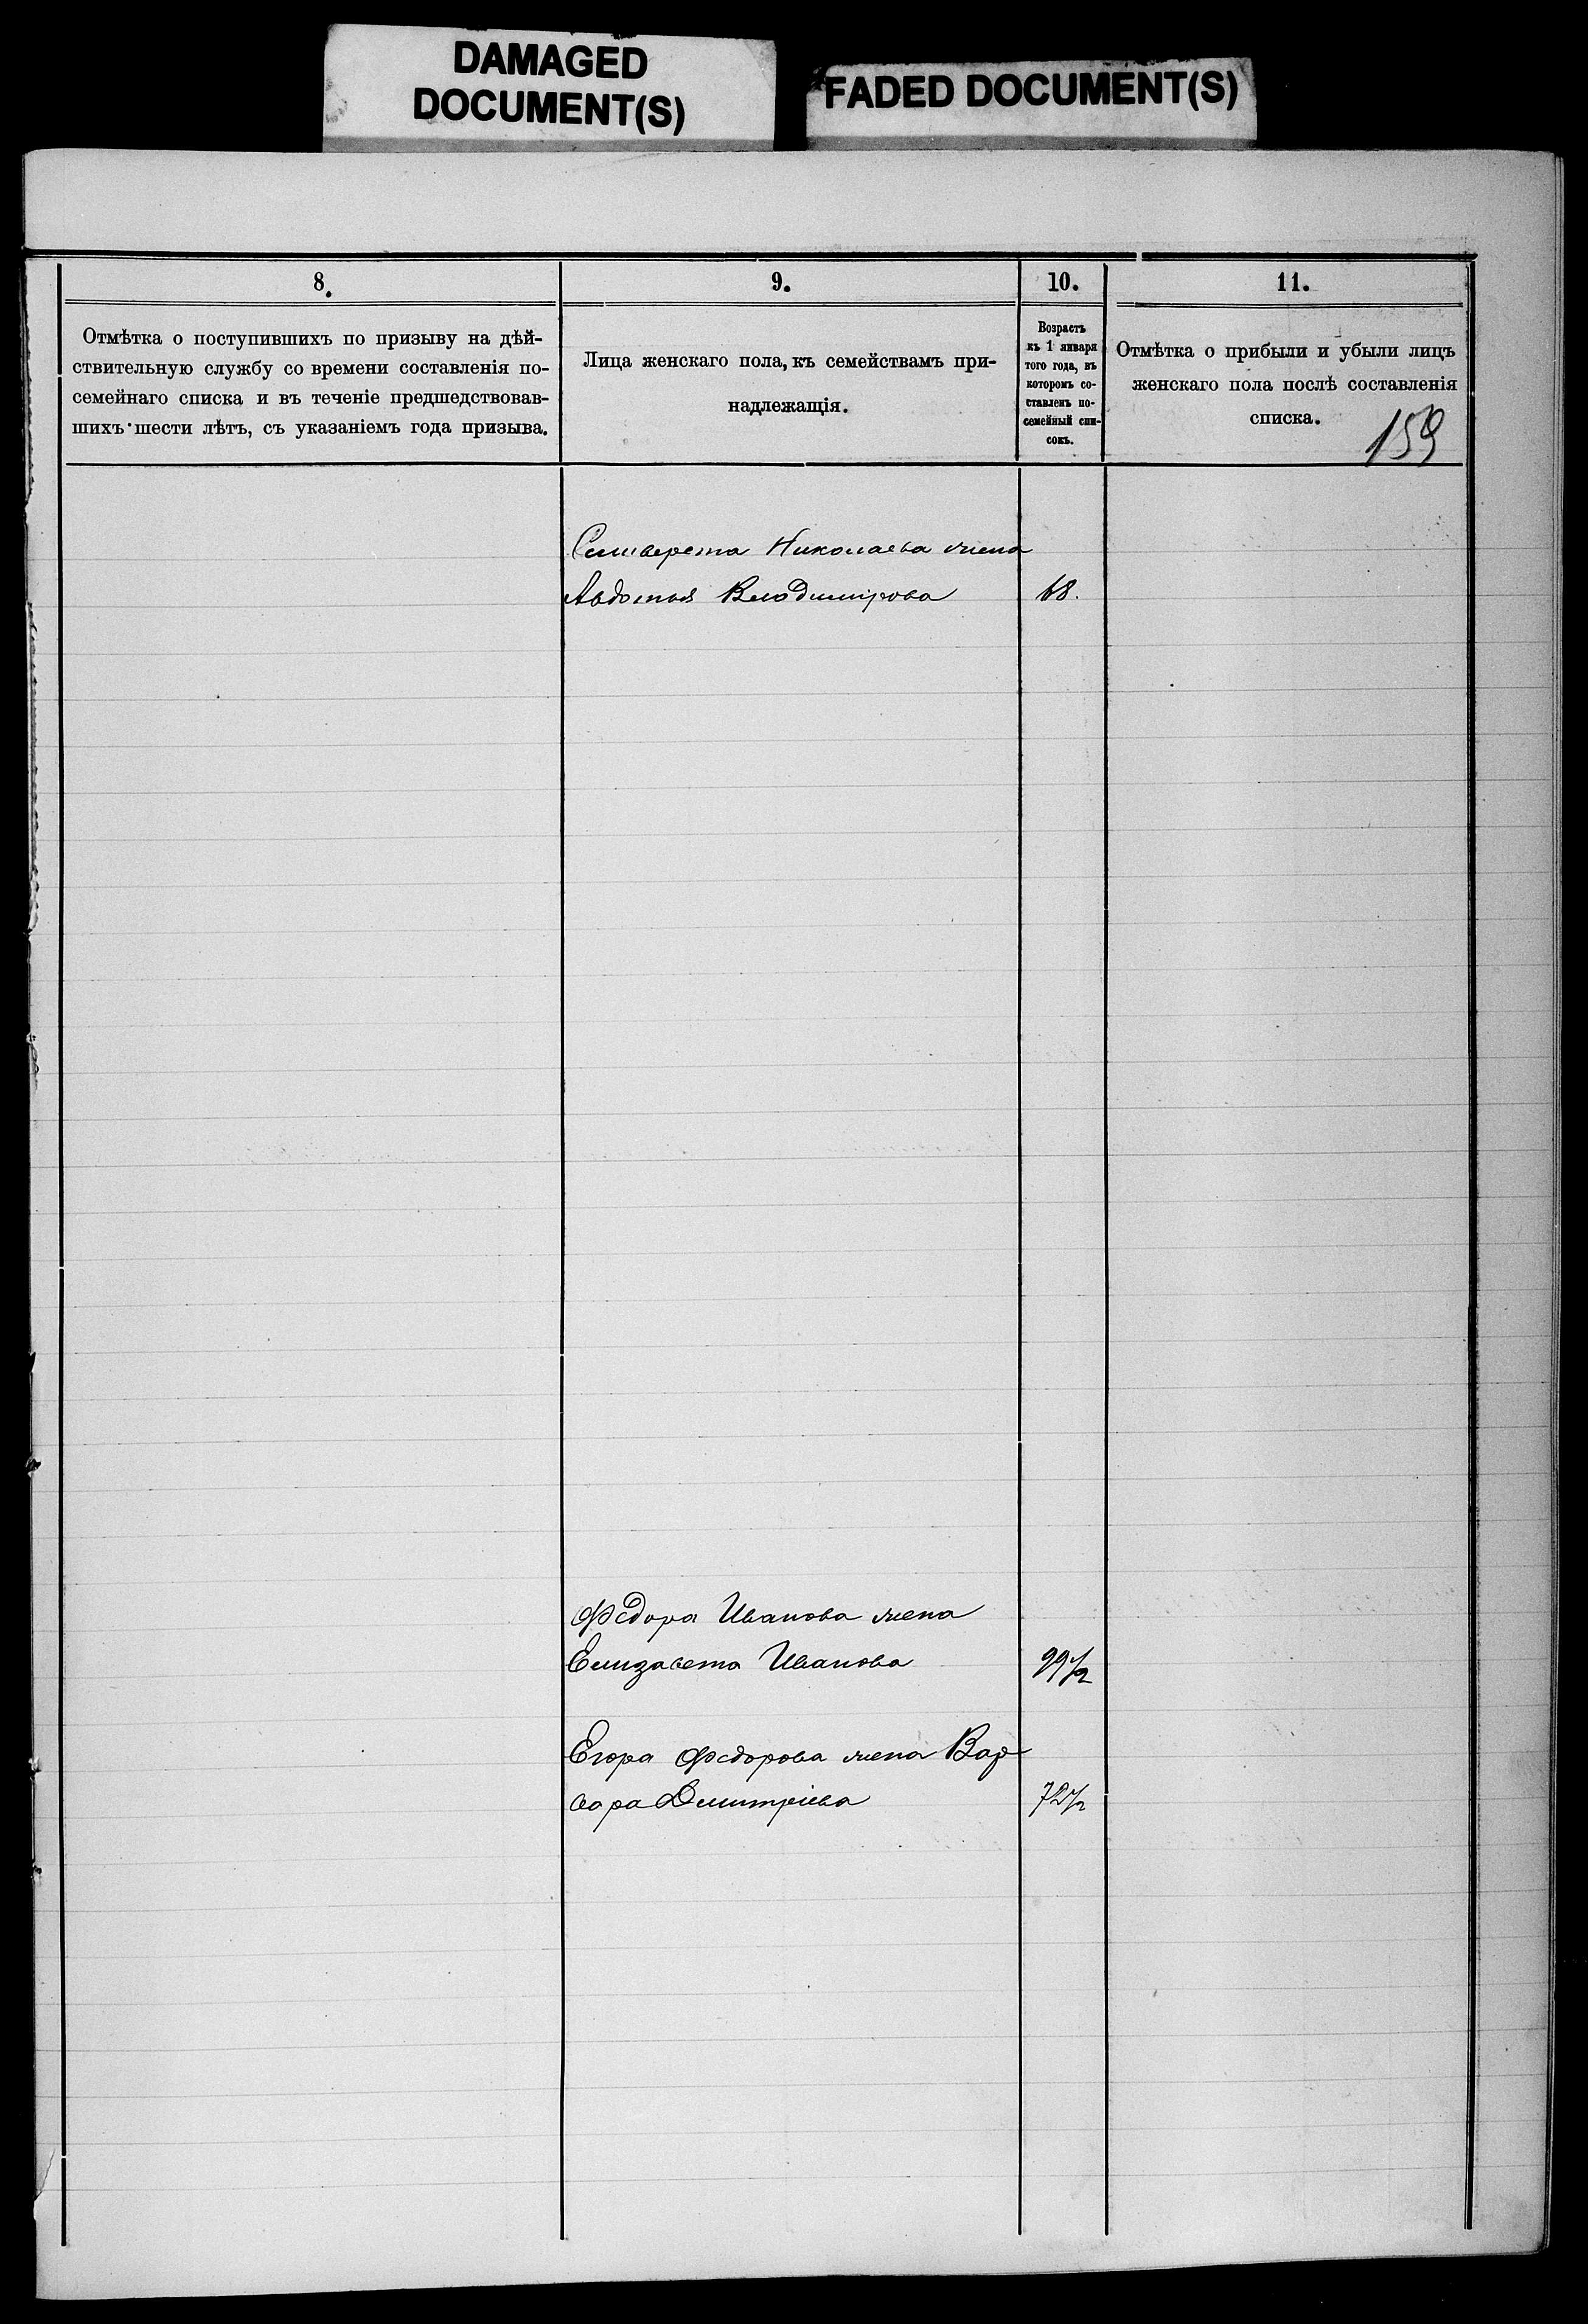 DAMAGED
DOCUMENT(S)
FADED DOCUMENT(S)
8.
Отмѣтка о поступившихъ по призыву на дѣй-
ствительную службу со времени составленія по-
семейнаго списка и въ теченіе предшедствовав-
шихъ шести лѣтъ, съ указаніемъ года призыва.
9.
Лица женскаго пола, къ семействамъ при-
надлежащія.
10.
Возрастъ
къ 1 января
того года, въ
которомъ со-
ставленъ по-
семейный спи-
сокъ.
11.
Отмѣтка о прибыли и убыли лицъ
женскаго пола послѣ составленія
списка.
159
Николаева жена
Авдотья Владимірова 68.
Федора Иванова жена
Елизавета Иванова 99½
Егора Федорова жена Вар
вара Дмитріева 72½